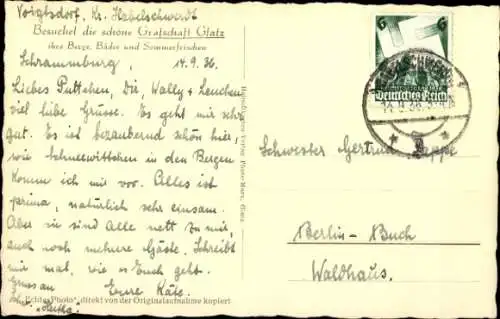 Voigtsdorf, Kr. Habelschwerdt
Besuchet die schöne Grafschaft Glatz
ihre Berge, Bäder und Sommerfrischen
Schrammburg, 14.9.36.
Liebes Puttchen, Dir, Wally + Leuchen
viel liebe Grüsse. Es geht mir sehr
gut. Es ist bezaubernd schön hier,
wie Schneewittchen in den Bergen
komm ich mir vor. Alles ist
prima, natürlich sehr einsam.
Aber sie sind Alle nett zu mir,
auch noch mehrere Gäste. Schreibt
mir mal, wie es Euch geht.
Eure Käte.
"Echte Photo" direkt von der Originalaufnahme kopiert
Verlag Glatz
6
Deutsches Reich
14.9.36
Schwester Gertrud
Berlin-Buch
Waldhaus.